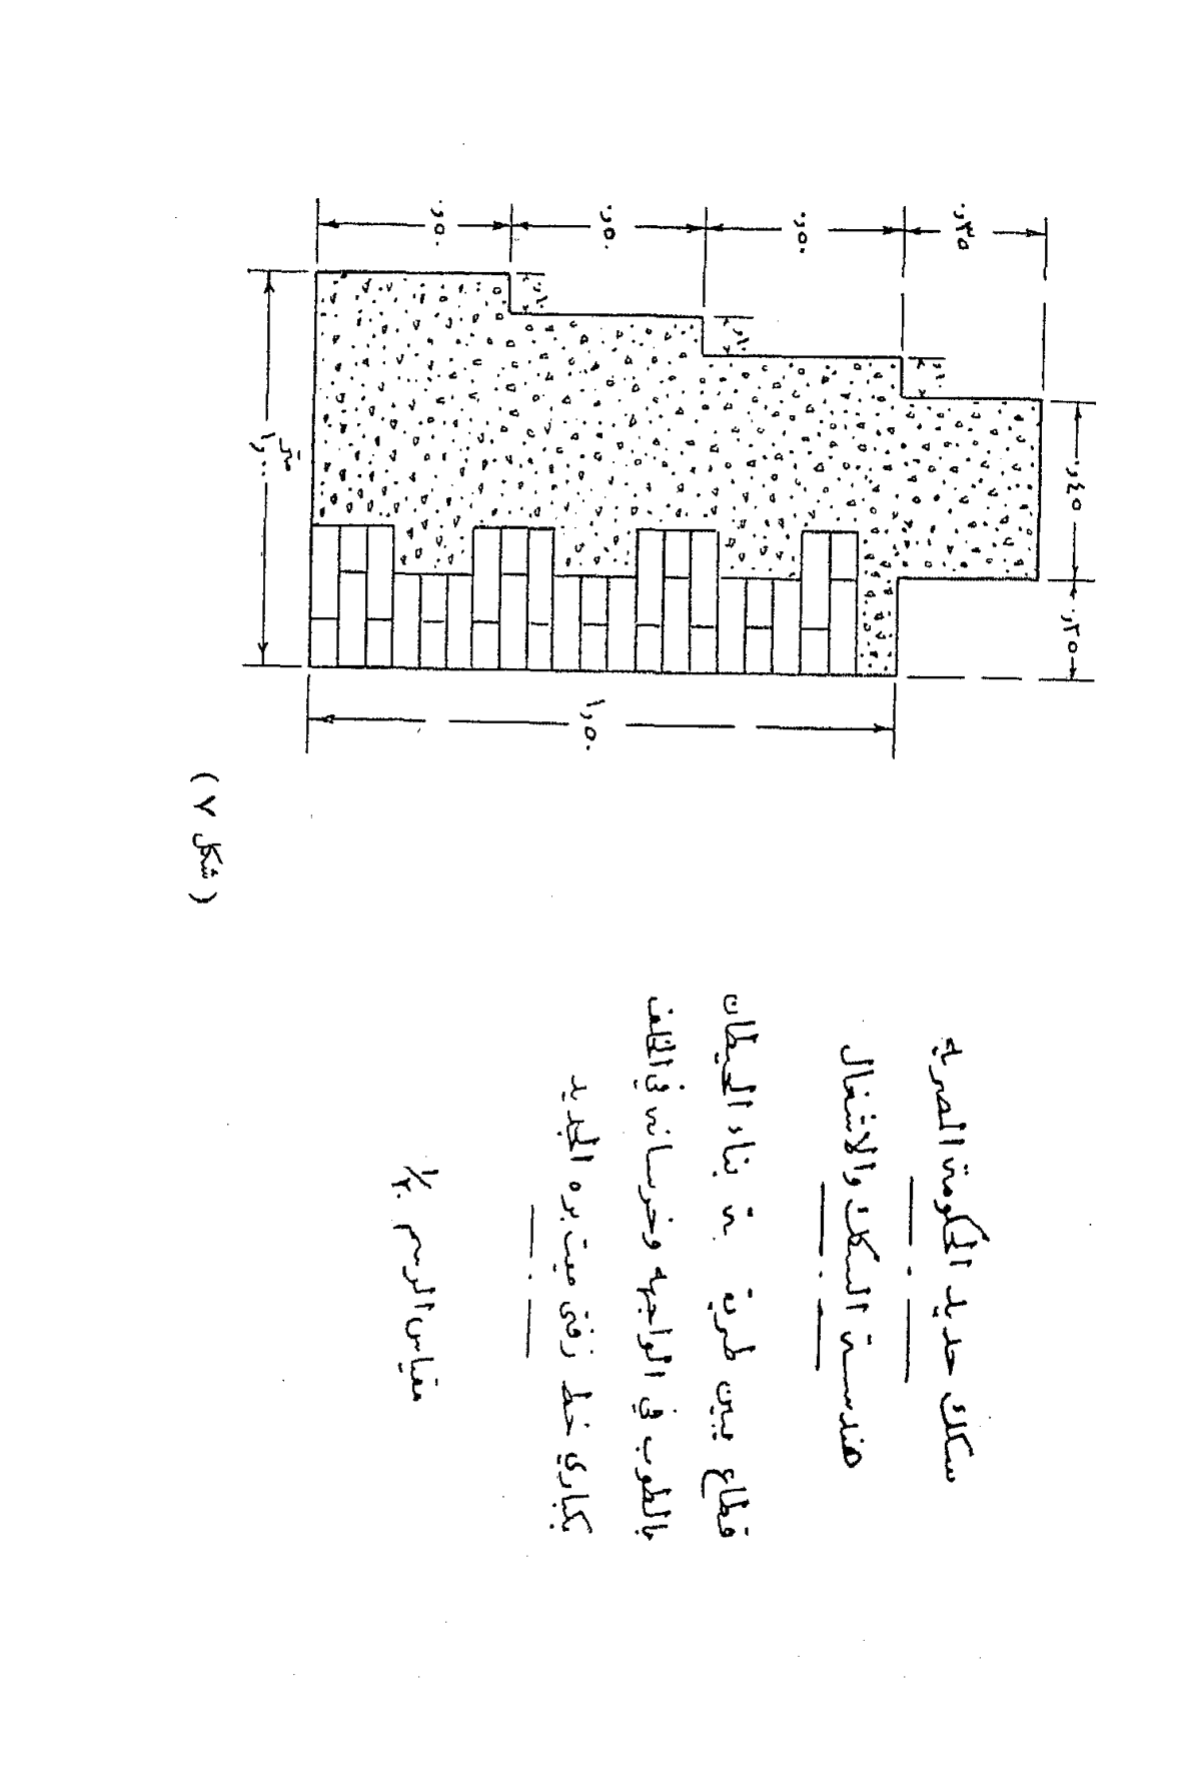 سكك حديد الحكومة المصرية
هندسة السكك والاشغال
قطاع يبين طريقة بناء الحيطان
بالطوب في الواجهه وخرسانه في الخلف
بكباري خط زفتى ميت بره الجديد
مقياس الرسم ١/٢٠
٠,٣٥
٠,٥٠
٠,٥٠
٠,٥٠
٠,١٠
٠,١٠
٠,١٠
٠,٤٥
٠,٢٥
١,٥٠
١,٠٠ متر
( شكل ٧ )